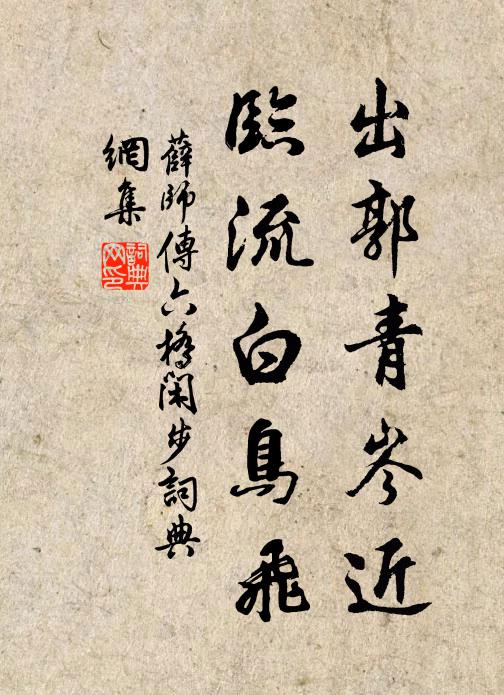 出郭青岑近
臨流白鳥飛
薛師傅六橋閑步詞典
網集
詞典网印